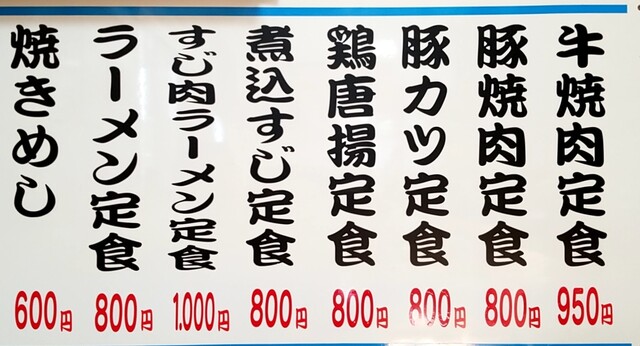 牛焼肉定食
950円
豚焼肉定食
800円
豚カツ定食
800円
鶏唐揚定食
800円
煮込すじ定食
800円
すじ肉ラーメン定食
1.000円
ラーメン定食
800円
焼きめし
600円